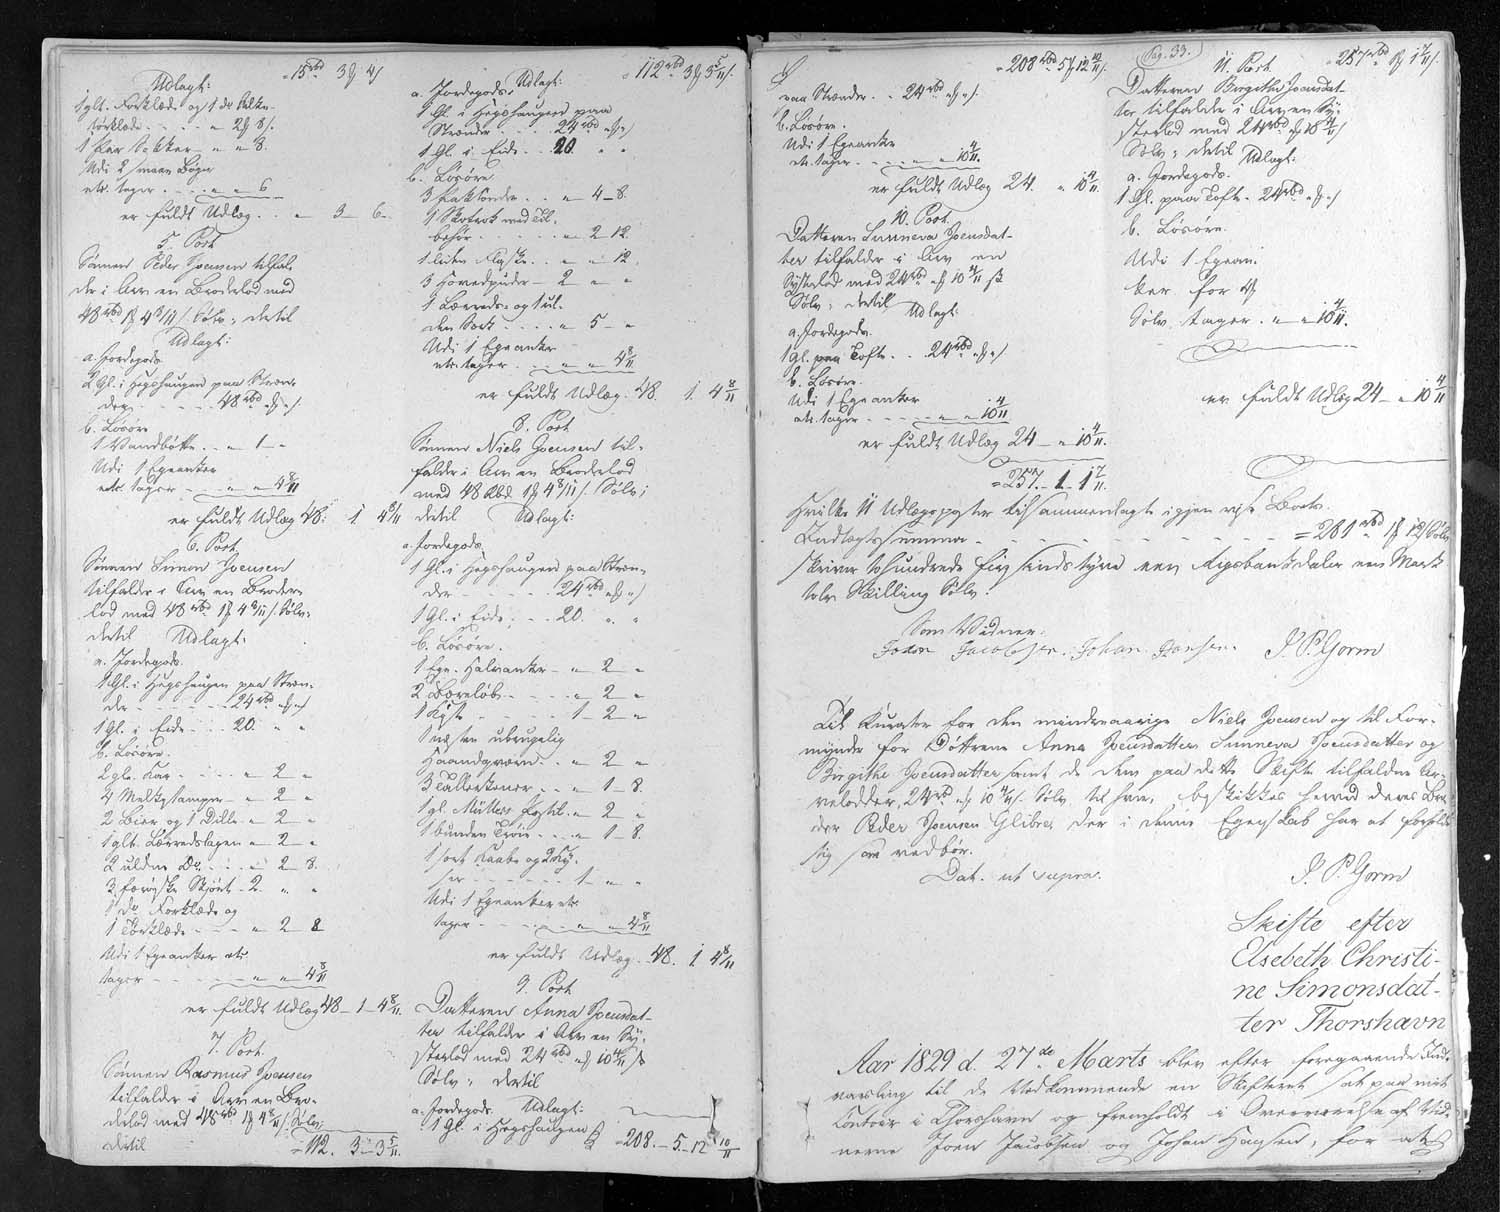 = 15 rbd 3 ꝑ 4 ß
Udlagt:
1 glt. Forklæde og 1 do Silke-
tørklæde - - - - " 2 ꝑ 8 ß.
1 Par Sokker - " " 8.
Udi 2 smaae Bøger
etc. tager - - - " " 6
er fuldt Udlæg . . " 3 - 6 -
5. Post
Sønnen Peder Joensen tilfal-
der i Arv en Broderlod med
48 rbd 1 ꝑ 4 8/11 ß. Sølv; dertil
Udlagt:
a. Jordegods
2 Gl. i Høgshaugen paa Stræn-
der - - - - - 48 rbd " ꝑ " ß
b. Løsøre
1 Vandbøtte - " 1 - "
Udi 1 Egeanker
etc. tager - - - " " 4 8/11
er fuldt Udlæg 48: 1 4 8/11
6. Post
Sønnen Simon Joensen
tilfalder i Arv en Broder-
lod med 48 rbd 1 ꝑ 4 8/11 ß. Sølv;
dertil Udlagt:
a. Jordegods.
1 Gl. i Høgshaugen paa Stræn-
der - - - - - 24 rbd " ꝑ " ß
1 Gl. i Eide - - - 20 " "
b. Løsøre.
2 gle. Kar - - - " 2 "
4 Melkestamper - " 2 "
2 Bier og 1 Dille - " 2 "
1 glt. Lærredslagen " 2 "
2 uldne Do - - - " 2 8.
3 færøiske Skjørt - 2 " "
1 do Forklæde og
1 Tørklæde - - - " 2 8
Udi 1 Egeanker etc.
tager - - - - " " 4 8/11
er fuldt Udlæg 48 - 1 - 4 8/11
7. Post.
Sønnen Rasmus Joensen
tilfalder i Arv en Bro-
derlod med 48 rbd 1 ꝑ 4 8/11 ß Sølv;
dertil = 112. 3 - 3 5/11
= 112 rbd 3 ꝑ 3 5/11 ß.
Udlagt:
a. Jordegods.
1 Gl. i Høgshaugen paa
Strænder - - - 24 rbd " ꝑ " ß
1 Gl. i Eide - - 20. " "
b. Løsøre
- - " 4 - 8.
1 Skotrok med Til-
behør - - - - " 2 - 12.
1 liden Flaske - - " " 12.
3 Hovedpuder - 2 - " "
1 Lærreds og 1 ul-
den Særk - - - - " 5 - "
Udi 1 Egeanker
etc. tager - - - " " 4 8/11
er fuldt Udlæg. 48. 1. 4 8/11
8. Post
Sønnen Niels Joensen til-
falder i Arv en Broderlod
med 48 Rbd. 1 ꝑ 4 8/11 ß. Sølv;
dertil Udlagt:
a. Jordegods.
1 Gl. i Høgshaugen paa Stræn-
der - - - - - 24 rbd " ꝑ " ß
1 Gl. i Eide; - - 20. " "
b. Løsøre.
1 Ege Halvanker - " 2 - "
2 Bæreløb - - - " 2 - "
1 - - - - - 1 - 2 - "
1 næsten ubrugelig
Haandqværn - - " 2 - "
3 Tallerkener - - " 1 - 8.
1 gl. Müllers Postil - " 2 - "
1 bunden Trøie - - " 1 - 8.
1 sort Kaabe og 2 Hy-
ser - - - - - 1 - " "
Udi 1 Egeanker etc.
tager - - - - - " " 4 8/11
er fuldt Udlæg. 48. 1. 4 8/11
9. Post
Datteren Anna Joensdat-
ter tilfalder i Arv en Sy-
sterlod med 24 rbd " ꝑ 10 4/11 ß
Sølv; dertil
Udlagt:
a. Jordegods.
1 Gl. i Høgshaugen
= 208. - 5 - 12 10/11
= 208 rbd 5 ꝑ 12 10/11 ß.
paa Strænder. - 24 rbd " ꝑ " ß.
b. Løsøre.
Udi 1 Egeanker
etc. tager - - - - " " 10 4/11.
er fuldt Udlæg 24. " 10 4/11.
10. Post
Datteren Sunneva Joensdat-
ter tilfalder i Arv en
Systerlod med 24 rbd " ꝑ 10 4/11 ß
Sølv; dertil
Udlagt:
a. Jordegods.
1 Gl. paa Toft - - 24 rbd " ꝑ " ß
b. Løsøre.
Udi 1 Egeanker
etc. tager - - - - " " 10 4/11
er fuldt Udlæg 24 - " 10 4/11.
= 257. - 1 - 1 7/11.
Pag. 33.
= 257 rbd 1 ꝑ 1 7/11 ß.
11. Post.
Datteren Birgithe Joensdat-
ter tilfalder i Arv en Sy-
sterlod med 24 rbd " ꝑ 10 4/11 ß
Sølv; dertil
Udlagt:
a. Jordegods.
1 Gl. paa Toft - 24 rbd " ꝑ " ß
b. Løsøre.
Udi 1 Egean-
ker for
Sølv tager. " " 10 4/11.
er fuldt Udlæg 24 - " 10 4/11
Hvilke 11 Udlægsposter tilsammenlagte igjen vise Boets
Indtægtssumma - - - - - = 281 rbd 1 ꝑ 12 ß Sølv
skriver tohundrede fiirsindstyve een Rigsbankdaler een Mark
tolv Skilling Sølv.
Som Vidner:
Joen Jacobsen. Johan Hansen. J. P. Gorm
Til Kurator for den mindreaarige Niels Joensen og til For-
mynder for Døttrene Anna Joensdatter, Sunneva Joensdatter og
Birgithe Joensdatter samt de dem paa dette Skifte tilfaldne Ar-
velodder, 24 rbd " ꝑ 10 4/11 ß. Sølv til hver, beskikkes herved deres Bro-
der Peder Joensen Glibre, der i denne Egenskab har at forholde
sig som vedbør.
Dat. ut supra.
J. P. Gorm
Skifte efter
Elsebeth Christi-
ne Simonsdat-
ter Thorshavn
Aar 1829 d. 27de Marts blev efter foregaaende Ind-
varsling til de Vedkommende en Skifteret sat paa mit
Contoir i Thorshavn og fremholdt i Overværelse af Vid-
nerne Joen Jacobsen og Johan Hansen, for at